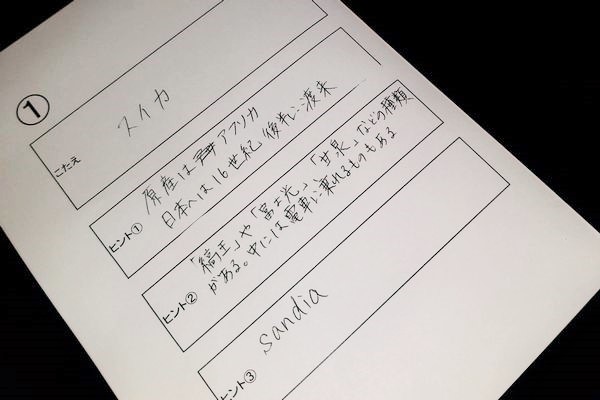 ①
こたえ
スイカ
ヒント①
原産はアフリカ
日本へは16世紀後半に渡来
ヒント②
「縞王」や「富士光」、「甘泉」などの種類
がある。中には電車に乗れるものもある
ヒント③
sandia